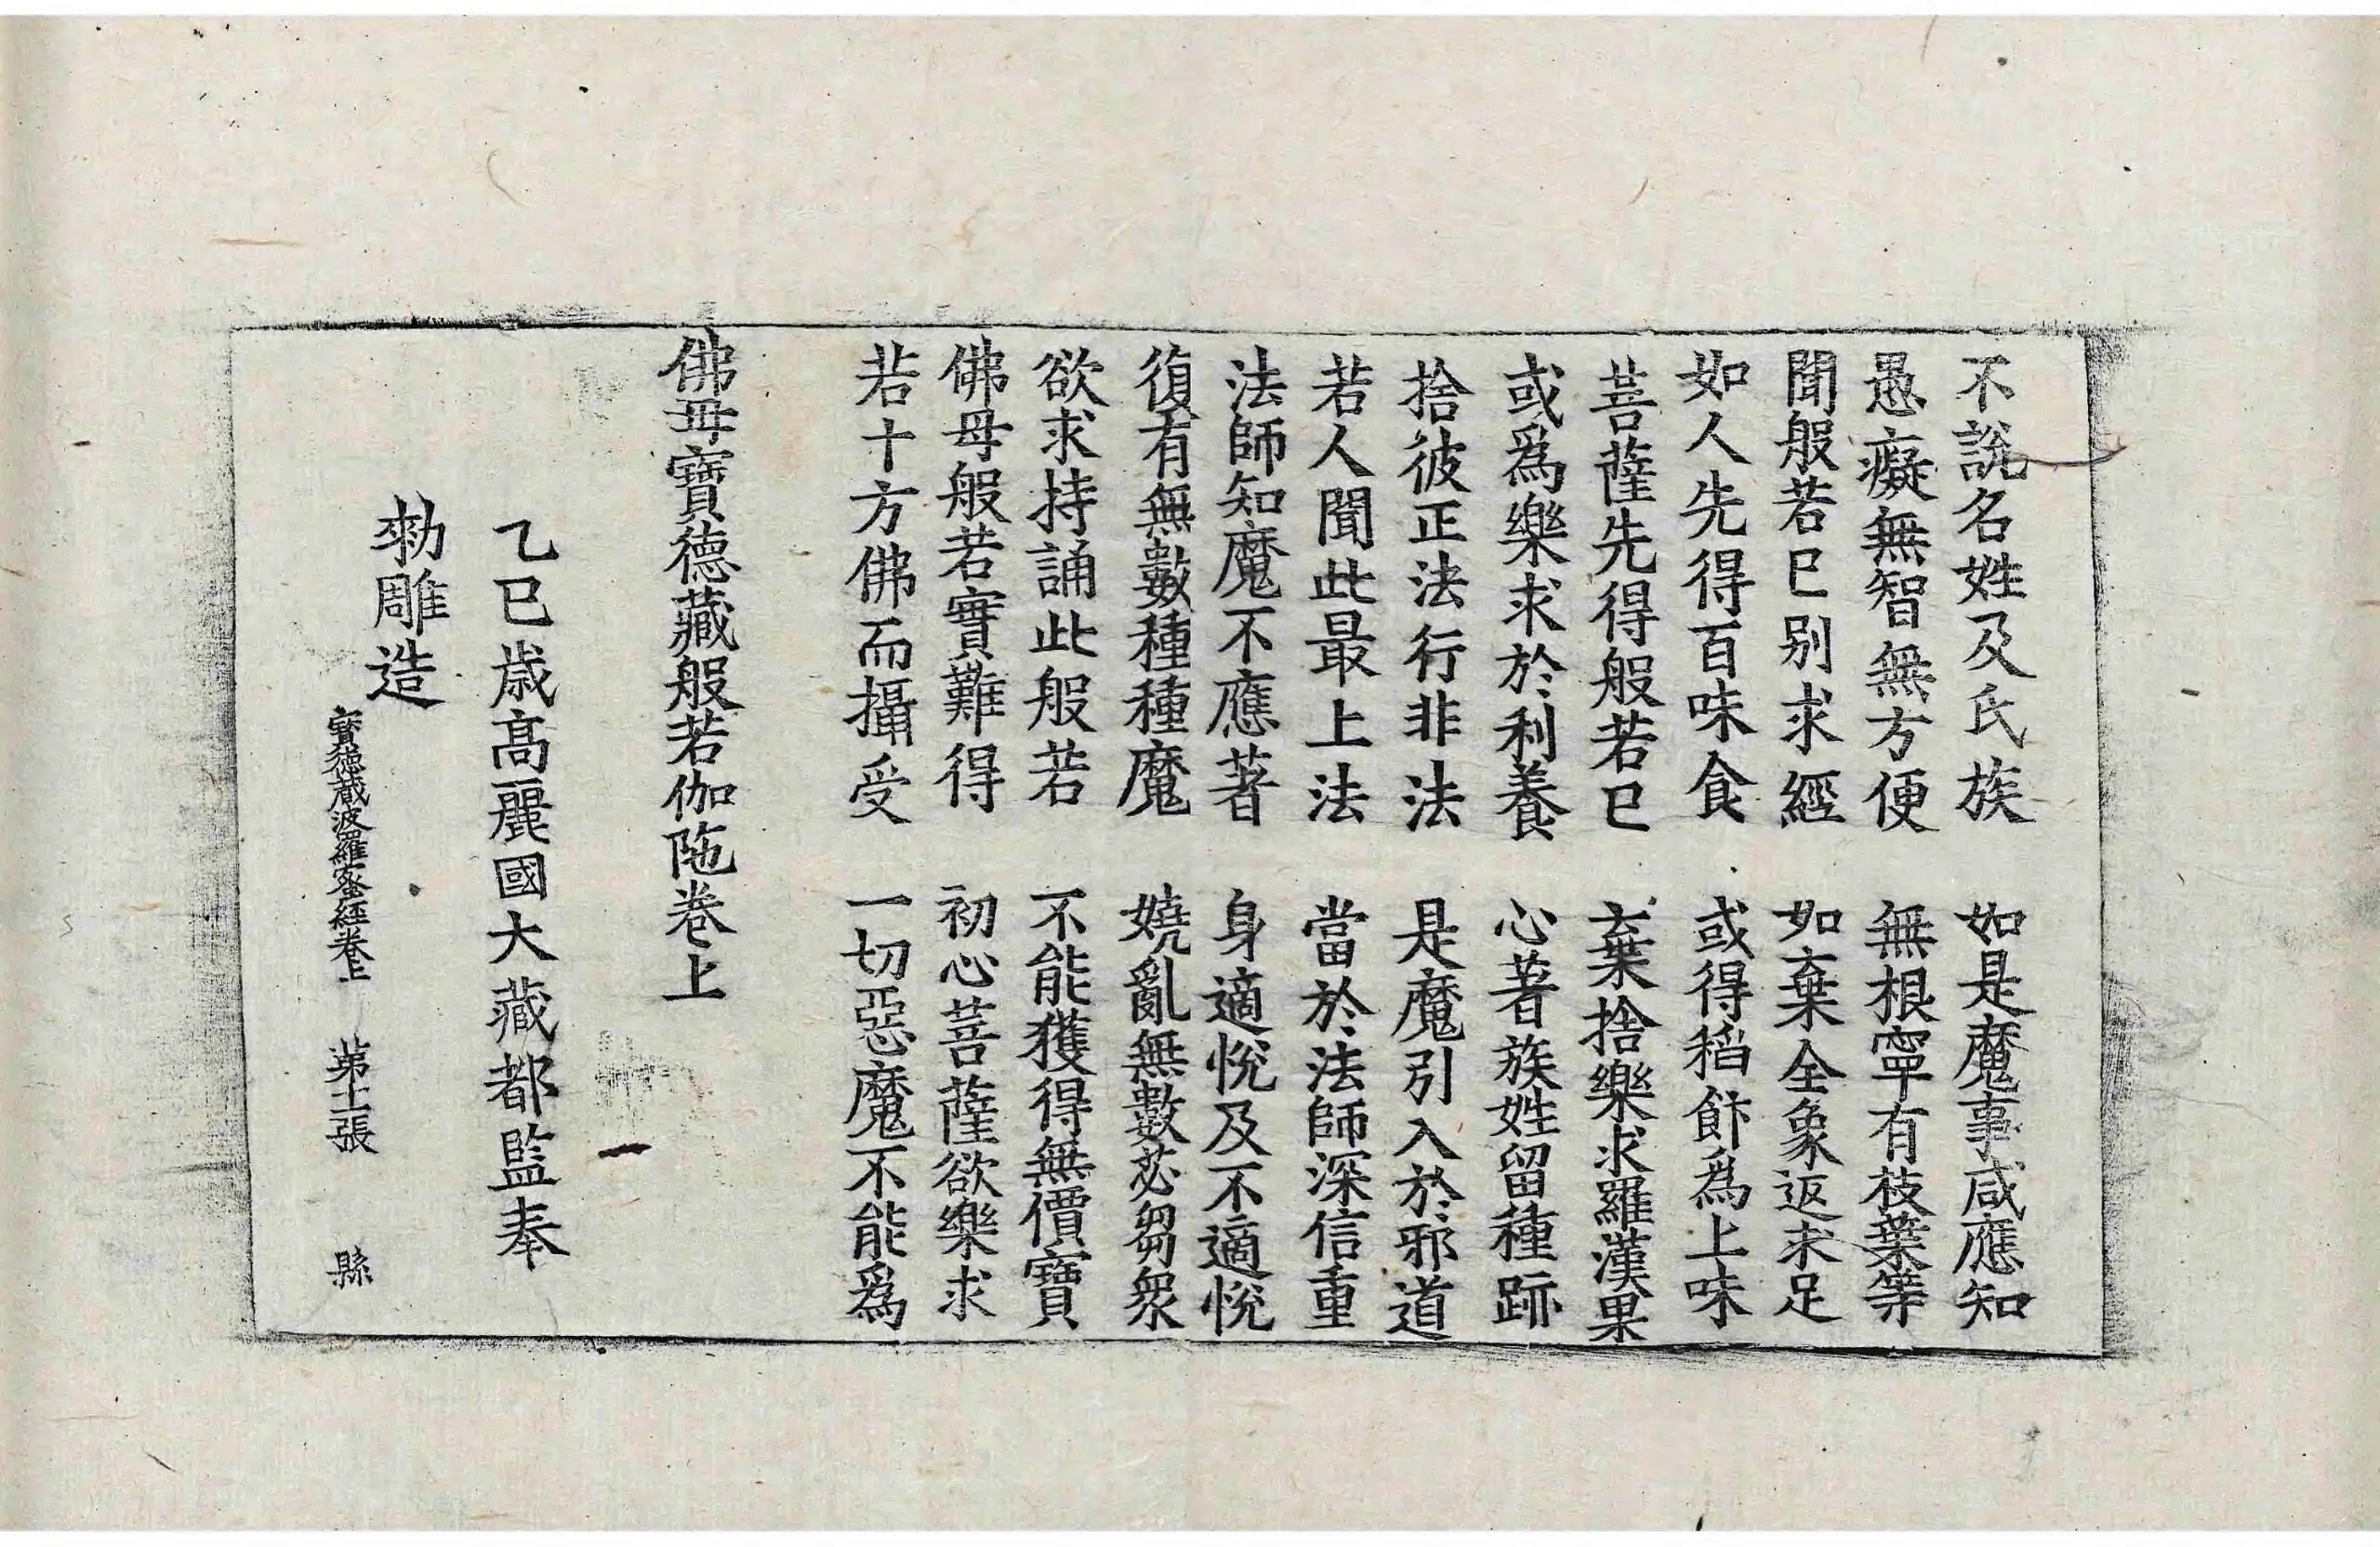 不說名姓及氏族　如是魔事咸應知
愚癡無智無方便　無根寧有枝葉等
聞般若已別求經　如棄全象返求足
如人先得百味食　或得稻飰為上味
菩薩先得般若已　棄捨樂求羅漢果
或爲樂求於利養　心著族姓留種跡
捨彼正法行非法　是魔引入於邪道
若人聞此最上法　當於法師深信重
法師知魔不應著　身適悅及不適悅
復有無數種種魔　嬈亂無數苾芻衆
欲求持誦此般若　不能獲得無價寶
佛母般若實難得　初心菩薩欲樂求
若十方佛而攝受　一切惡魔不能爲
佛母寶德藏般若伽陁卷上
乙巳歲高麗國大藏都監奉
勑雕造
寶德藏波羅蜜經卷上　第十二張　縣